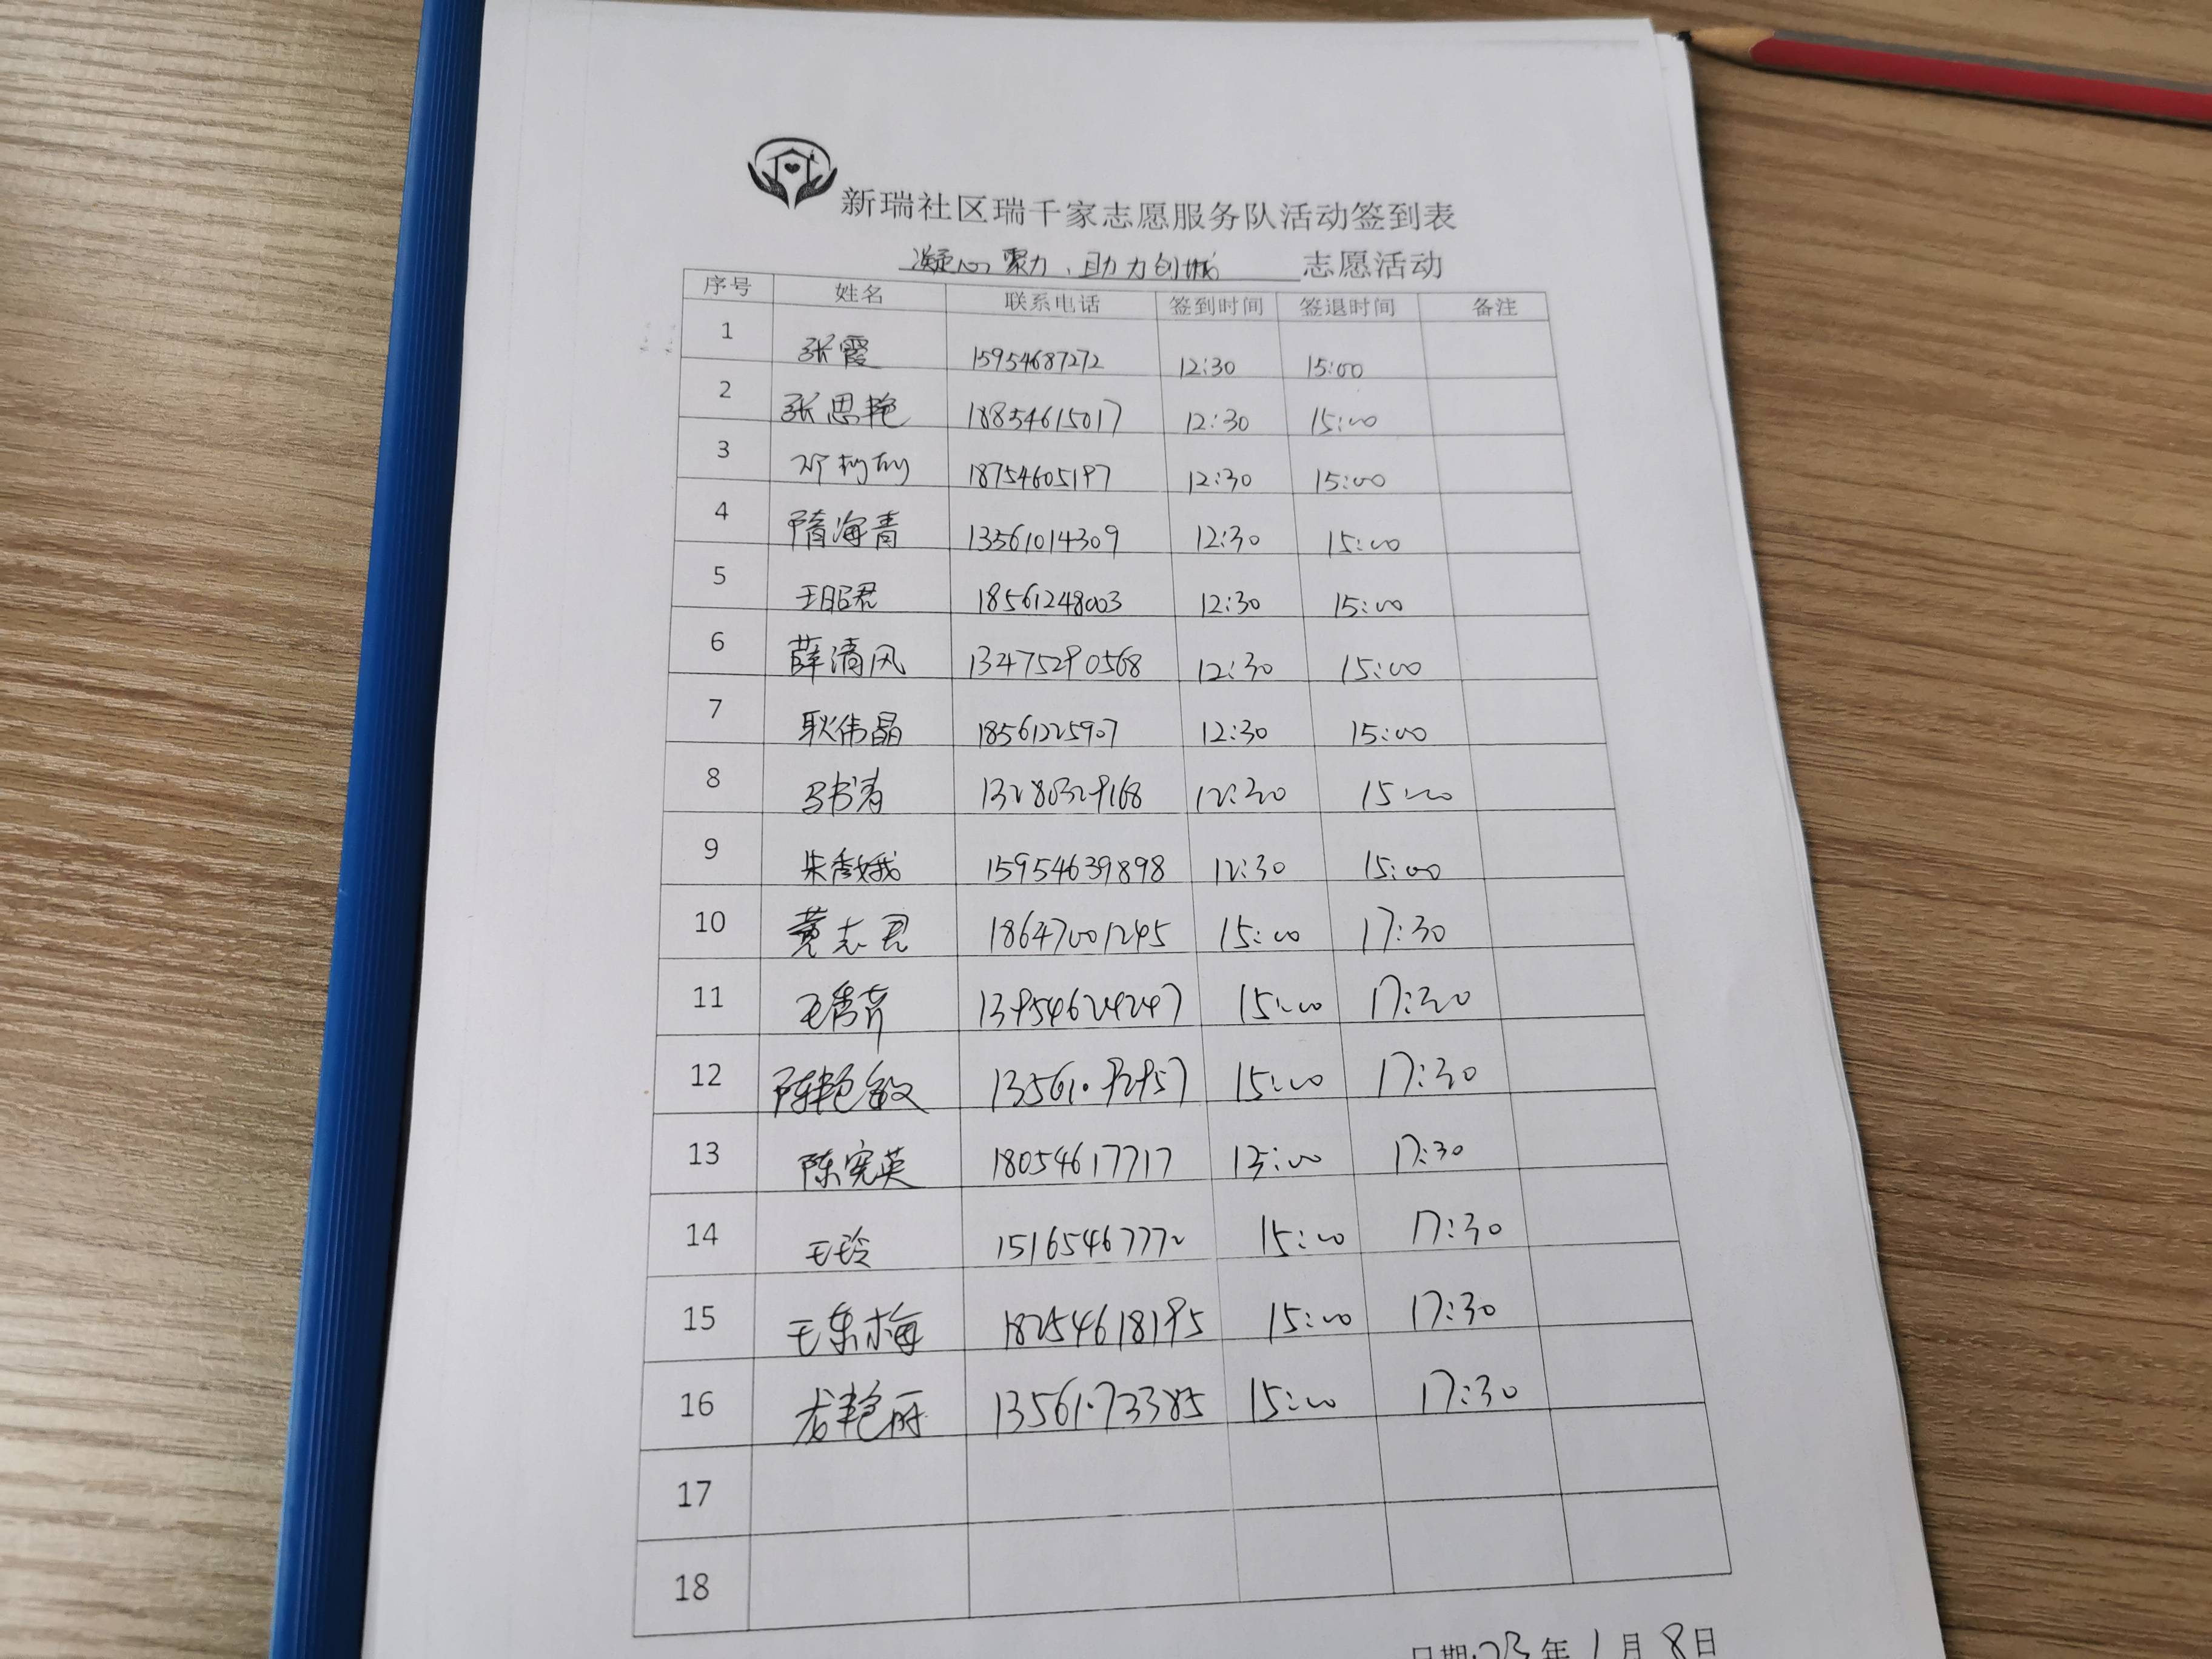 新瑞社区瑞千家志愿服务队活动签到表
凝心聚力、助力创城 志愿活动
序号 姓名 联系电话 签到时间 签退时间 备注
1 张霞 15954687272 12:30 15:00
2 张思艳 18854615017 12:30 15:00
3 18754605197 12:30 15:00
4 隋海青 13561014309 12:30 15:00
5 王昭君 18561248003 12:30 15:00
6 薛清风 13475290568 12:30 15:00
7 耿伟晶 18561225907 12:30 15:00
8 13280329168 12:30 15:00
9 朱秀娥 15954639898 12:30 15:00
10 黄志君 18647001245 15:00 17:30
11 王秀芹 13954624247 15:00 17:30
12 陈艳敏 15:00 17:30
13 陈宪英 18054617717 15:00 17:30
14 王玲 15165467772 15:00 17:30
15 王东梅 18254618195 15:00 17:30
16 尤艳丽 13561073385 15:00 17:30
17
18
日期:23年1月8日